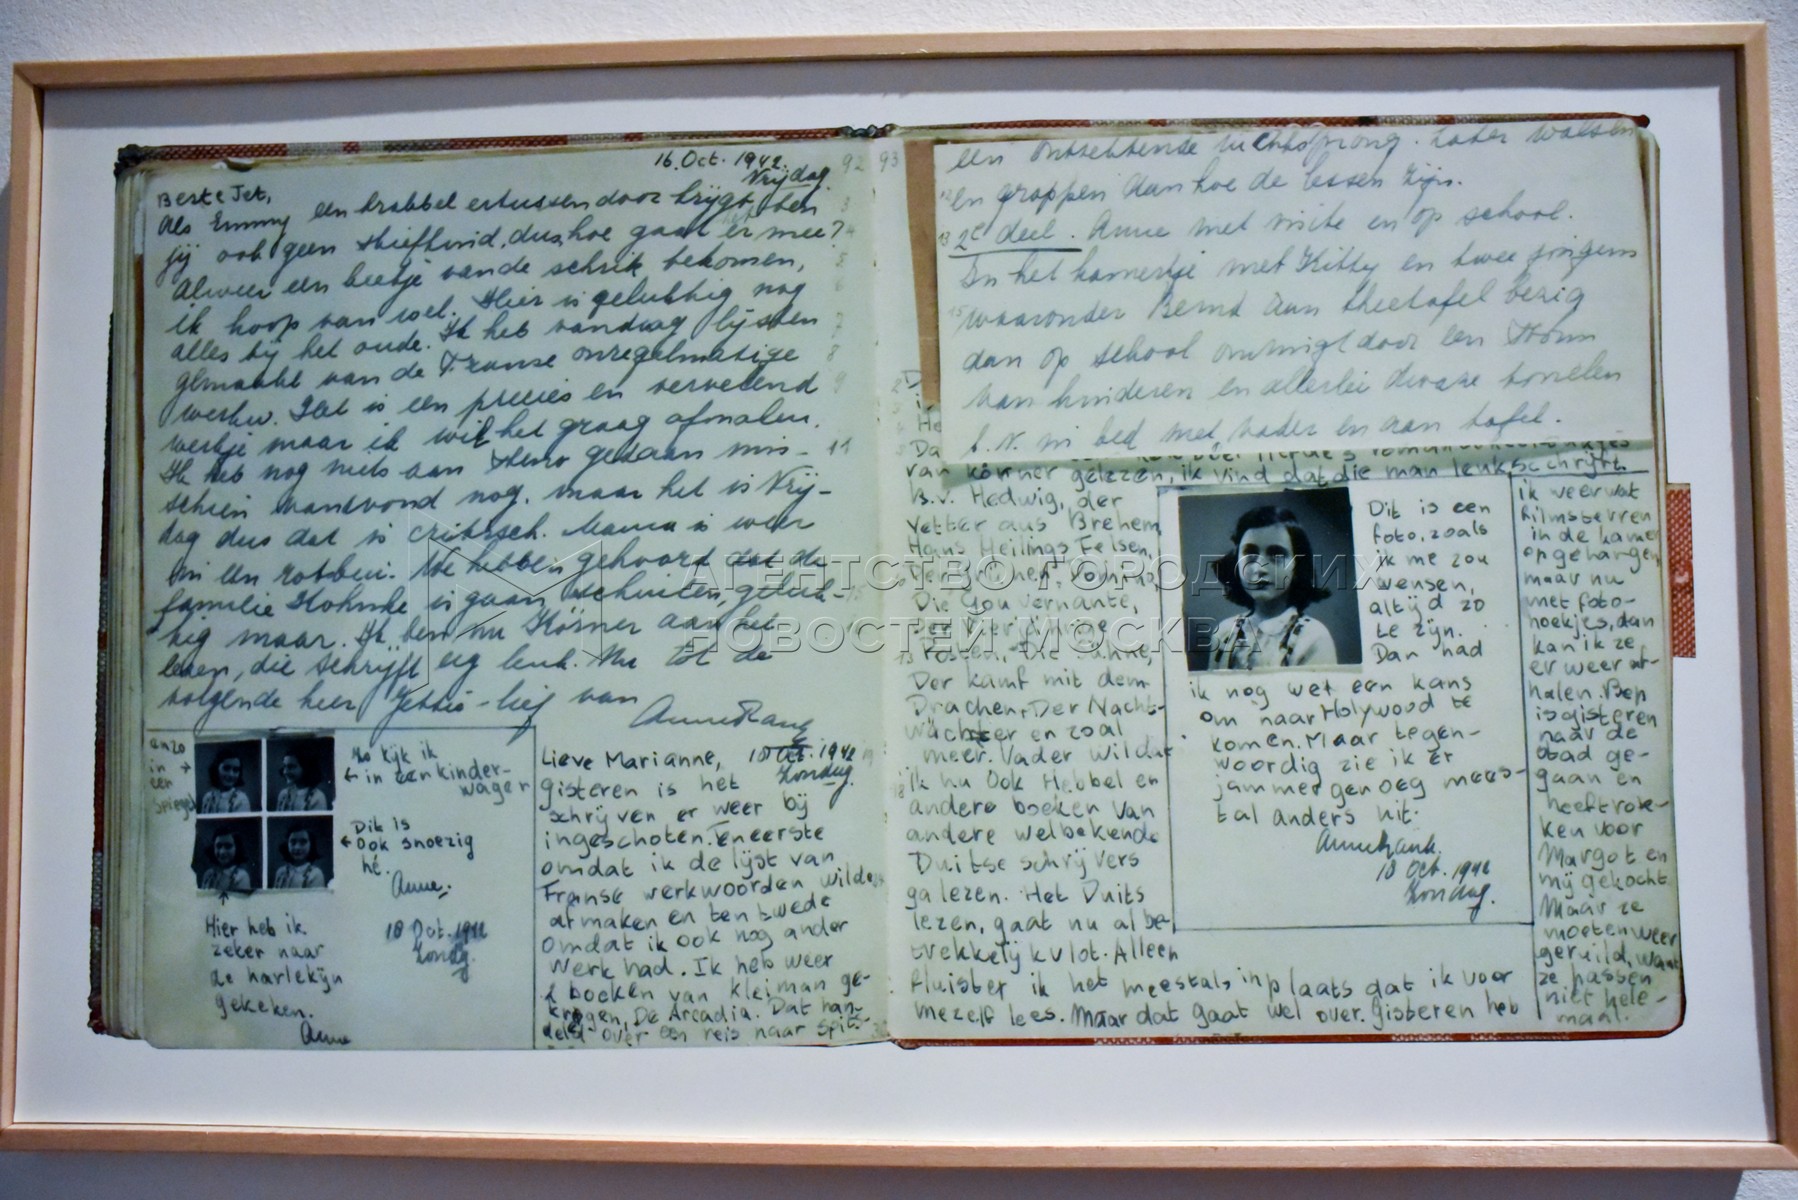 16. Oct. 1942.
Vrijdag.
92
Beste Jet,
Als Emmy een krabbel ertussendoor krijgt, ben
jij ook geen stiefkind, dus hoe gaat er mee?
Alweer een beetje van de schrik bekomen,
ik hoop van wel. Hier is gelukkig nog
alles bij het oude. Ik heb vandaag lijsten
gemaakt van de Franse onregelmatige
werkw. Het is een precies en vervelend
werkje maar ik wil het graag afmaken.
Ik heb nog niets aan steno gedaan mis-
schien vanavond nog. maar het is Vrij-
dag dus dat is critisch. Mama is weer
We hebben gehoord dat de
familie is gaan schuilen, geluk-
kig maar. Ik ben nu Körner aan het
lezen, die schrijft erg leuk. Nu tot de
volgende keer Jettie-lief van
Anne Frank
enzo
in
een
spiegel
Zo kijk ik
in een kinder-
wagen
Dit is
ook snoezig
hé.
Anne.
18 Oct. 1942
Zondag.
Hier heb ik
zeker naar
de harlekijn
gekeken.
Anne
Lieve Marianne,
18 Oct. 1942
Zondag.
gisteren is het
schrijven er weer bij
ingeschoten. Teneerste
omdat ik de lijst van
Franse werkwoorden wilde
afmaken en ten twede
omdat ik ook nog ander
werk had. Ik heb weer
2 boeken van Kleiman ge-
kregen, De Arcadia. Dat han-
deld over een reis naar Spits-
93
een ontzettende luchtsprong. Later walsen
en grappen dan hoe de lessen zijn.
2e deel. Anne met visite en op school.
In het kamertje met Kitty en twee jongens
waaronder Bernd aan theetafel bezig
dan op school omringt door een
van kinderen en allerlei dwaze tonelen
b.v. in bed met vader en aan tafel.
van Körner gelezen, ik vind dat die man leuk schrijft.
B.v. Hedwig, der
Vetter aus Brehem,
Hans Heilings Felsen,
Der Grünen Domino,
Die Gouvernante,
Der Vierjährige
Posten, Die Sühne,
Der Kamf mit dem
Drachen, Der Nacht-
wächter en zoal
meer. Vader wil dat
ik nu ook Hebbel en
andere boeken van
andere welbekende
Duitse schrijvers
ga lezen. Het Duits
lezen, gaat nu al be-
trekkelijk vlot. Alleen
fluister ik het meestal, inplaats dat ik voor
mezelf lees. Maar dat gaat wel over. Gisteren heb
Dit is een
foto, zoals
ik me zou
wensen,
altijd zo
te zijn.
Dan had
ik nog wel een kans
om naar Holywood te
komen. Maar tegen-
woordig zie ik er
jammer genoeg mees-
tal anders uit.
Anne Frank.
18 Oct. 1942
Zondag.
ik weer wat
filmsterren
in de kamer
opgehangen,
maar nu
met foto-
hoekjes, dan
kan ik ze
er weer af-
halen. Bep
is gisteren
naar de
stad ge-
gaan en
heeft rok-
ken voor
Margot en
mij gekocht.
Maar ze
moeten weer
geruild, want
ze passen
niet hele-
maal.
АГЕНТСТВО ГОРОДСКИХ
НОВОСТЕЙ МОСКВА